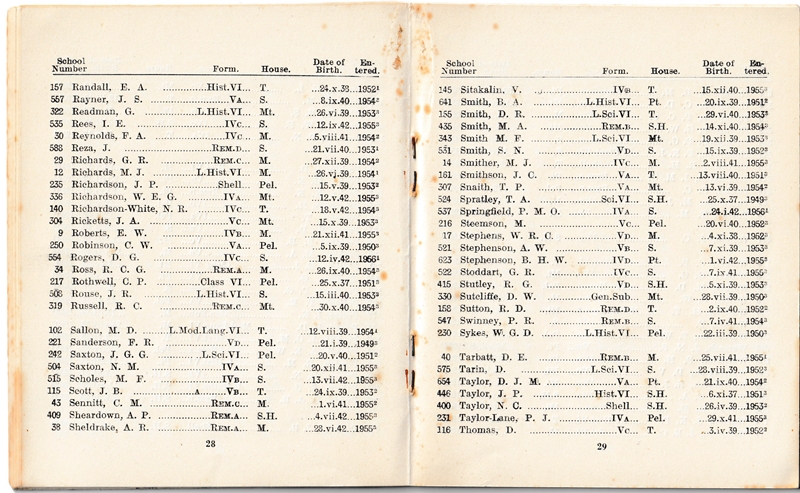 School Date of En-
Number Form. House. Birth. tered.
157 Randall, E. A. ..............Hist.VI... T. ...24.x.38...1952¹
557 Rayner, J. S. ......................VA... S. ...8.ix.40...1954²
322 Readman, G. ................L.Hist.VI... Mt. ...26.vi.39...1953³
535 Rees, I. E. .....................IVC... S. ...12.ix.42...1955³
30 Reynolds, F. A. ..................IVC... M. ...5.viii.41...1954²
588 Reza, J. ....................REM.D... S. ...21.vii.40...1953¹
29 Richards, G. R. ..............REM.C... M. ...27.xii.39...1954²
12 Richards, M. J. ............L.Hist.VI... M. ...26.vi.39...1954¹
235 Richardson, J. P. ..............Shell... Pel. ...15.v.39...1953²
336 Richardson, W. E. G. ..........IVA... Mt. ...12.v.42...1955³
140 Richardson-White, N. R. ......IVC... T. ...18.v.42...1954³
304 Ricketts, J. A. ..................VC... Mt. ...15.x.39...1953³
9 Roberts, E. W. ..................IVB... M. ...21.xii.41...1955³
250 Robinson, C. W. .................VA... Pel. ...5.ix.39...1950³
554 Rogers, D. G. ..................IVC... S. ...12.iv.42...1956¹
34 Ross, R. C. G. ................REM.A... M. ...26.ix.40...1954³
217 Rothwell, C. P. ............Class VI... Pel. ...25.x.37...1951³
508 Rouse, J. R. ................L.Hist.VI... S. ...15.iii.40...1953³
319 Russell, R. C. ................REM.C... Mt. ...30.x.40...1954³
102 Sallon, M. D. ....L.Mod.Lang.VI... T. ...12.viii.39...1954¹
221 Sanderson, F. R. ................VD... Pel. ...21.i.39...1949³
242 Saxton, J. G. G. ............L.Sci.VI... Pel. ...20.v.40...1951³
504 Saxton, N. M. ..................IVA... S. ...20.xii.41...1955³
515 Scholes, M. F. ..................IVB... S. ...13.vii.42...1955³
115 Scott, J. B. ............A......VB... T. ...24.ix.39...1953³
43 Sennitt, C. M. ..............REM.C... M. ...1.vi.41...1955²
409 Sheardown, A. P. ............REM.A... S.H. ...4.vii.42...1955³
38 Sheldrake, A. R. ............REM.A... M. ...28.vi.42...1955³
28
School Date of En-
Number Form. House. Birth. tered.
145 Sitakalin, V. ....................IVB... T. ...15.xii.40...1955³
641 Smith, B. A. ................L.Hist.VI... Pt. ...20.ix.39...1951²
155 Smith, D. R. ................L.Sci.VI... T. ...29.vi.40...1953³
435 Smith, M. A. ..................REM.B... S.H. ...14.xi.40...1954²
343 Smith M. F. ..................L.Sci.VI... Mt. ...19.xii.39...1953³
531 Smith, S. N. ......................VD... S. ...15.ix.39...1952³
14 Smither, M. J. ..................IVC... M. ...2.viii.41...1955³
161 Smithson, J. C. ..................VA... T. ...13.viii.40...1951³
307 Snaith, T. P. ....................VA... Mt. ...13.vi.39...1954²
524 Spratley, T. A. ................Sci.VI... S.H. ...25.x.37...1949³
537 Springfield, P. M. O. ............IVA... S. ...24.i.42...1956¹
216 Steemson, M. ....................VC... Pel. ...20.vi.40...1952²
17 Stephens, W. R. C. ..............VD... M. ...4.xi.38...1952³
521 Stephenson, A. W. ..............VB... S. ...7.xi.39...1953³
623 Stephenson, B. H. W. ..........IVD... Pt. ...1.vi.42...1955³
522 Stoddart, G. R. ..................IVC... S. ...7.ix.41...1955³
415 Stutley, R. G. ....................VD... S.H. ...5.xi.39...1953³
330 Sutcliffe, D. W. ..............Gen.Sub... Mt. ...28.vii.39...1950³
158 Sutton, R. D. ..................REM.D... T. ...2.ix.40...1952³
547 Swinney, P. R. ..................REM.B... S. ...7.iv.41...1954³
230 Sykes, W. G. D. ............L.Hist.VI... Pel. ...22.iii.39...1950³
40 Tarbatt, D. E. ..................REM.B... M. ...25.vii.41...1955¹
575 Tarin, D. ......................L.Sci.VI... S. ...28.viii.39...1952³
654 Taylor, D. J. M. ................VA... Pt. ...21.ix.40...1954²
446 Taylor, J. P. ..................Hist.VI... S.H. ...6.xi.37...1951³
400 Taylor, N. C. ....................Shell... S.H. ...26.iv.39...1953²
231 Taylor-Lane, P. J. ..............IVA... Pel. ...29.x.41...1955³
116 Thomas, D. ......................VC... T. ...3.iv.39...1952²
29